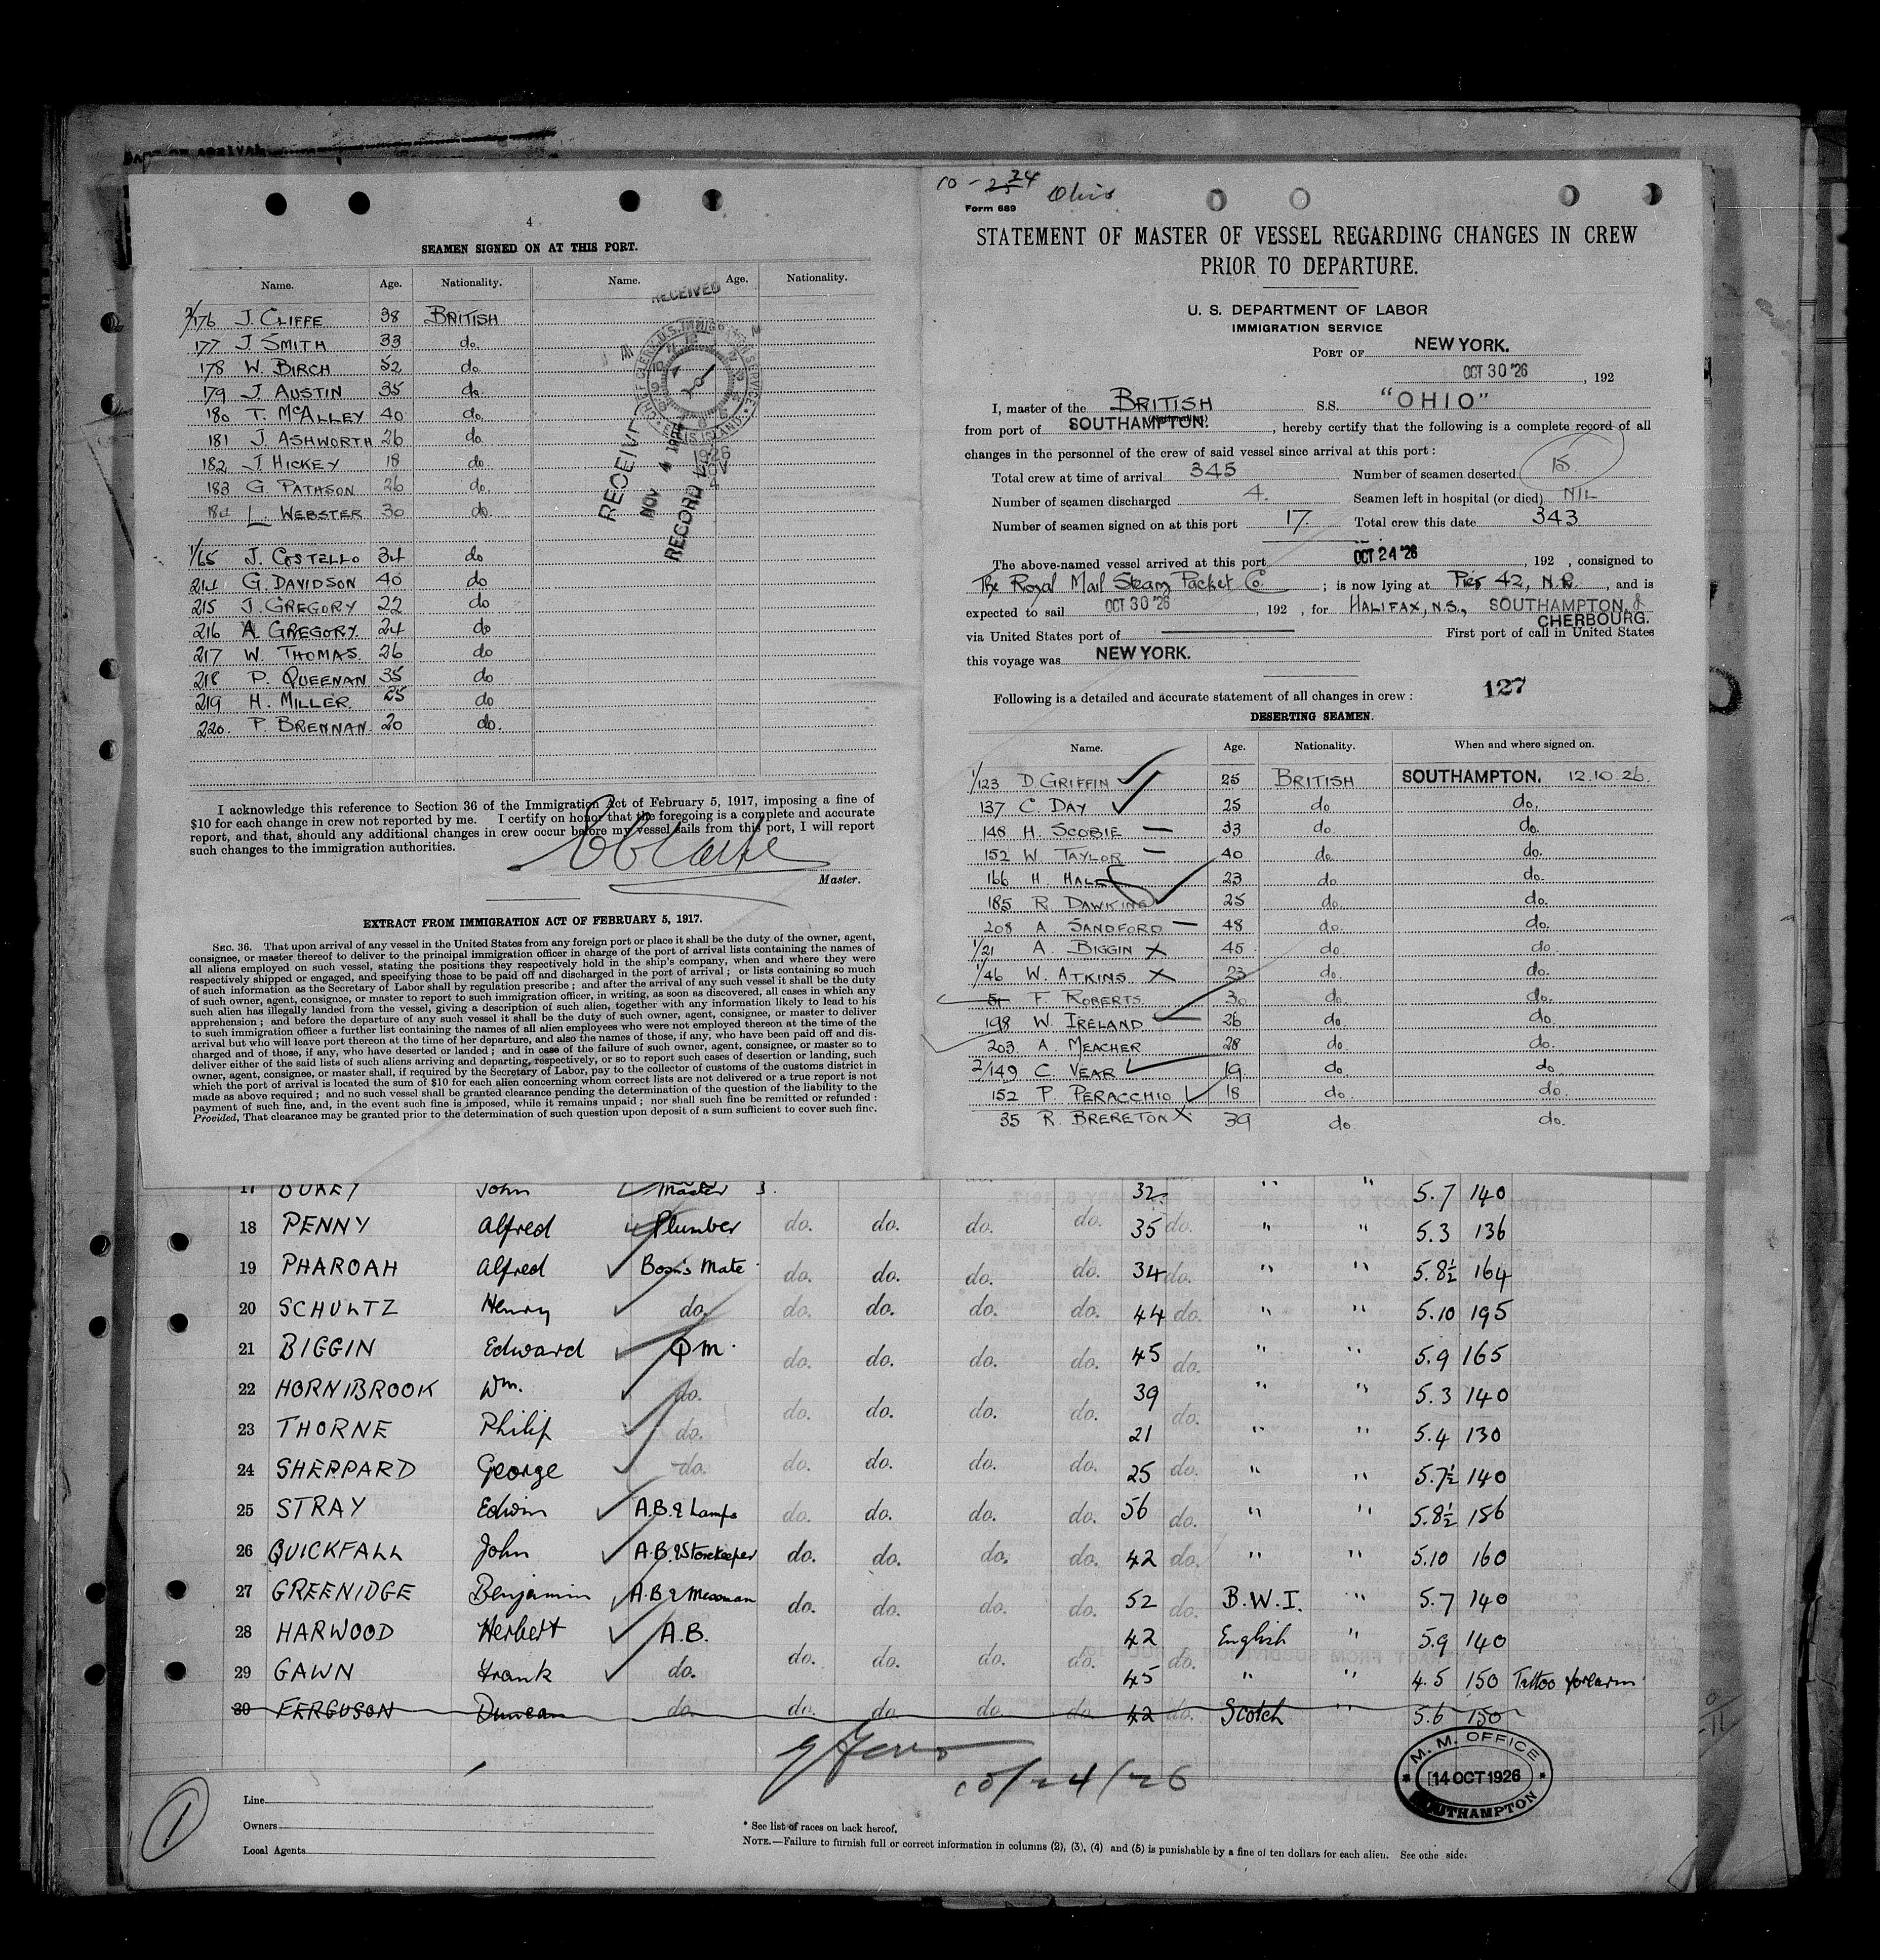 4
SEAMEN SIGNED ON AT THIS PORT.
Name. Age. Nationality. Name. Age. Nationality.
2/176 J. CLIFFE 38 BRITISH
177 J. SMITH 33 do.
178 W. BIRCH 52 do.
179 J. AUSTIN 35 do.
180 T. McALLEY 40 do.
181 J. ASHWORTH 26 do.
182 J. HICKEY 18 do.
183 G. PATHSON 26 do.
184 L. WEBSTER 30 do.
1/65 J. COSTELLO 34 do
214 G. DAVIDSON 40 do
215 J. GREGORY 22 do
216 A. GREGORY. 24 do
217 W. THOMAS. 26 do
218 P. QUEENAN 35 do
219 H. MILLER. 25 do
220. P. BRENNAN. 20 do.
RECEIVED
CHIEF CLERK U.S. IMMIGRATION SERVICE
ELLIS ISLAND
1926 NOV 4
I acknowledge this reference to Section 36 of the Immigration Act of February 5, 1917, imposing a fine of
$10 for each change in crew not reported by me. I certify on honor that the foregoing is a complete and accurate
report, and that, should any additional changes in crew occur before my vessel sails from this port, I will report
such changes to the immigration authorities.
Master.
EXTRACT FROM IMMIGRATION ACT OF FEBRUARY 5, 1917.
SEC. 36. That upon arrival of any vessel in the United States from any foreign port or place it shall be the duty of the owner, agent,
consignee, or master thereof to deliver to the principal immigration officer in charge of the port of arrival lists containing the names of
all aliens employed on such vessel, stating the positions they respectively hold in the ship's company, when and where they were
respectively shipped or engaged, and specifying those to be paid off and discharged in the port of arrival; or lists containing so much
of such information as the Secretary of Labor shall by regulation prescribe; and after the arrival of any such vessel it shall be the duty
of such owner, agent, consignee, or master to report to such immigration officer, in writing, as soon as discovered, all cases in which any
such alien has illegally landed from the vessel, giving a description of such alien, together with any information likely to lead to his
apprehension; and before the departure of any such vessel it shall be the duty of such owner, agent, consignee, or master to deliver
to such immigration officer a further list containing the names of all alien employees who were not employed thereon at the time of the
arrival but who will leave port thereon at the time of her departure, and also the names of those, if any, who have been paid off and dis-
charged and of those, if any, who have deserted or landed; and in case of the failure of such owner, agent, consignee, or master so to
deliver either of the said lists of such aliens arriving and departing, respectively, or so to report such cases of desertion or landing, such
owner, agent, consignee, or master shall, if required by the Secretary of Labor, pay to the collector of customs of the customs district in
which the port of arrival is located the sum of $10 for each alien concerning whom correct lists are not delivered or a true report is not
made as above required; and no such vessel shall be granted clearance pending the determination of the question of the liability to the
payment of such fine, and, in the event such fine is imposed, while it remains unpaid; nor shall such fine be remitted or refunded:
Provided, That clearance may be granted prior to the determination of such question upon deposit of a sum sufficient to cover such fine.
Ohio
Form 689
STATEMENT OF MASTER OF VESSEL REGARDING CHANGES IN CREW
PRIOR TO DEPARTURE.
U. S. DEPARTMENT OF LABOR
IMMIGRATION SERVICE
PORT OF NEW YORK.
OCT 30 '26, 192
I, master of the BRITISH (Nationality) S.S. "OHIO"
from port of SOUTHAMPTON., hereby certify that the following is a complete record of all
changes in the personnel of the crew of said vessel since arrival at this port:
Total crew at time of arrival 345 Number of seamen deserted 15.
Number of seamen discharged 4. Seamen left in hospital (or died) NIL
Number of seamen signed on at this port 17. Total crew this date 343
The above-named vessel arrived at this port OCT 24 '26, 192 , consigned to
The Royal Mail Steam Packet Co; is now lying at Pier 42, N.R., and is
expected to sail OCT 30 '26, 192 , for HALIFAX, N.S., SOUTHAMPTON, &
CHERBOURG.
via United States port of First port of call in United States
this voyage was NEW YORK.
Following is a detailed and accurate statement of all changes in crew: 127
DESERTING SEAMEN.
Name. Age. Nationality. When and where signed on.
1/123 D. GRIFFIN 25 BRITISH SOUTHAMPTON. 12.10.26.
137 C. DAY 25 do do.
148 H. SCOBIE 33 do. do.
152 W. TAYLOR 40 do. do.
166 H. HALL 23 do. do.
185 R. DAWKINS 25 do. do.
208 A. SANDFORD 48 do. do.
1/21 A. BIGGIN X 45 do. do.
1/46 W. ATKINS X 23 do. do.
51 F. ROBERTS 30 do. do.
198 W. IRELAND 26 do. do.
203. A MEACHER 28 do. do.
2/149 C. VEAR 19. do. do
152 P. PERACCHIO 18 do. do.
35 R. BRERETON X 39 do. do.
17 John Master 32 " " 5.7 140
18 PENNY Alfred Plumber do. do. do. do. 35 do. " " 5.3 136
19 PHAROAH Alfred Bosn's Mate do. do. do. do. 34 do. " " 5.8½ 164
20 SCHULTZ Henry do. do. do. do. do. 44 do. " " 5.10 195
21 BIGGIN Edward Q.M. do. do. do. do. 45 do. " " 5.9 165
22 HORNIBROOK Wm. do. do. do. do. do. 39 do. " " 5.3 140
23 THORNE Philip do. 21 " " 5.4 130
24 SHEPPARD George do. do. do. do. do. 25 do. " " 5.7½ 140
25 STRAY Edwin A.B. & Lamps do. do. do. do. 56 do. " " 5.8½ 156
26 QUICKFALL John A.B. & Storekeeper do. do. do. do. 42 do. " " 5.10 160
27 GREENIDGE Benjamin A.B. & Messman do. do. do. do. 52 do. B.W.I. " 5.7 140
28 HARWOOD Herbert A.B. do. do. do. do. 42 do. English " 5.9 140
29 GAWN Frank do. 45 " " 4.5 150 Tattoo forearm
30 FERGUSON Duncan do. do. do. do. do. 42 do. Scotch " 5.6 150
10/24/26
M. M. OFFICE
14 OCT 1926
SOUTHAMPTON
1
Line
Owners
Local Agents
* See list of races on back hereof.
NOTE.—Failure to furnish full or correct information in columns (2), (3), (4) and (5) is punishable by a fine of ten dollars for each alien. See othe side.